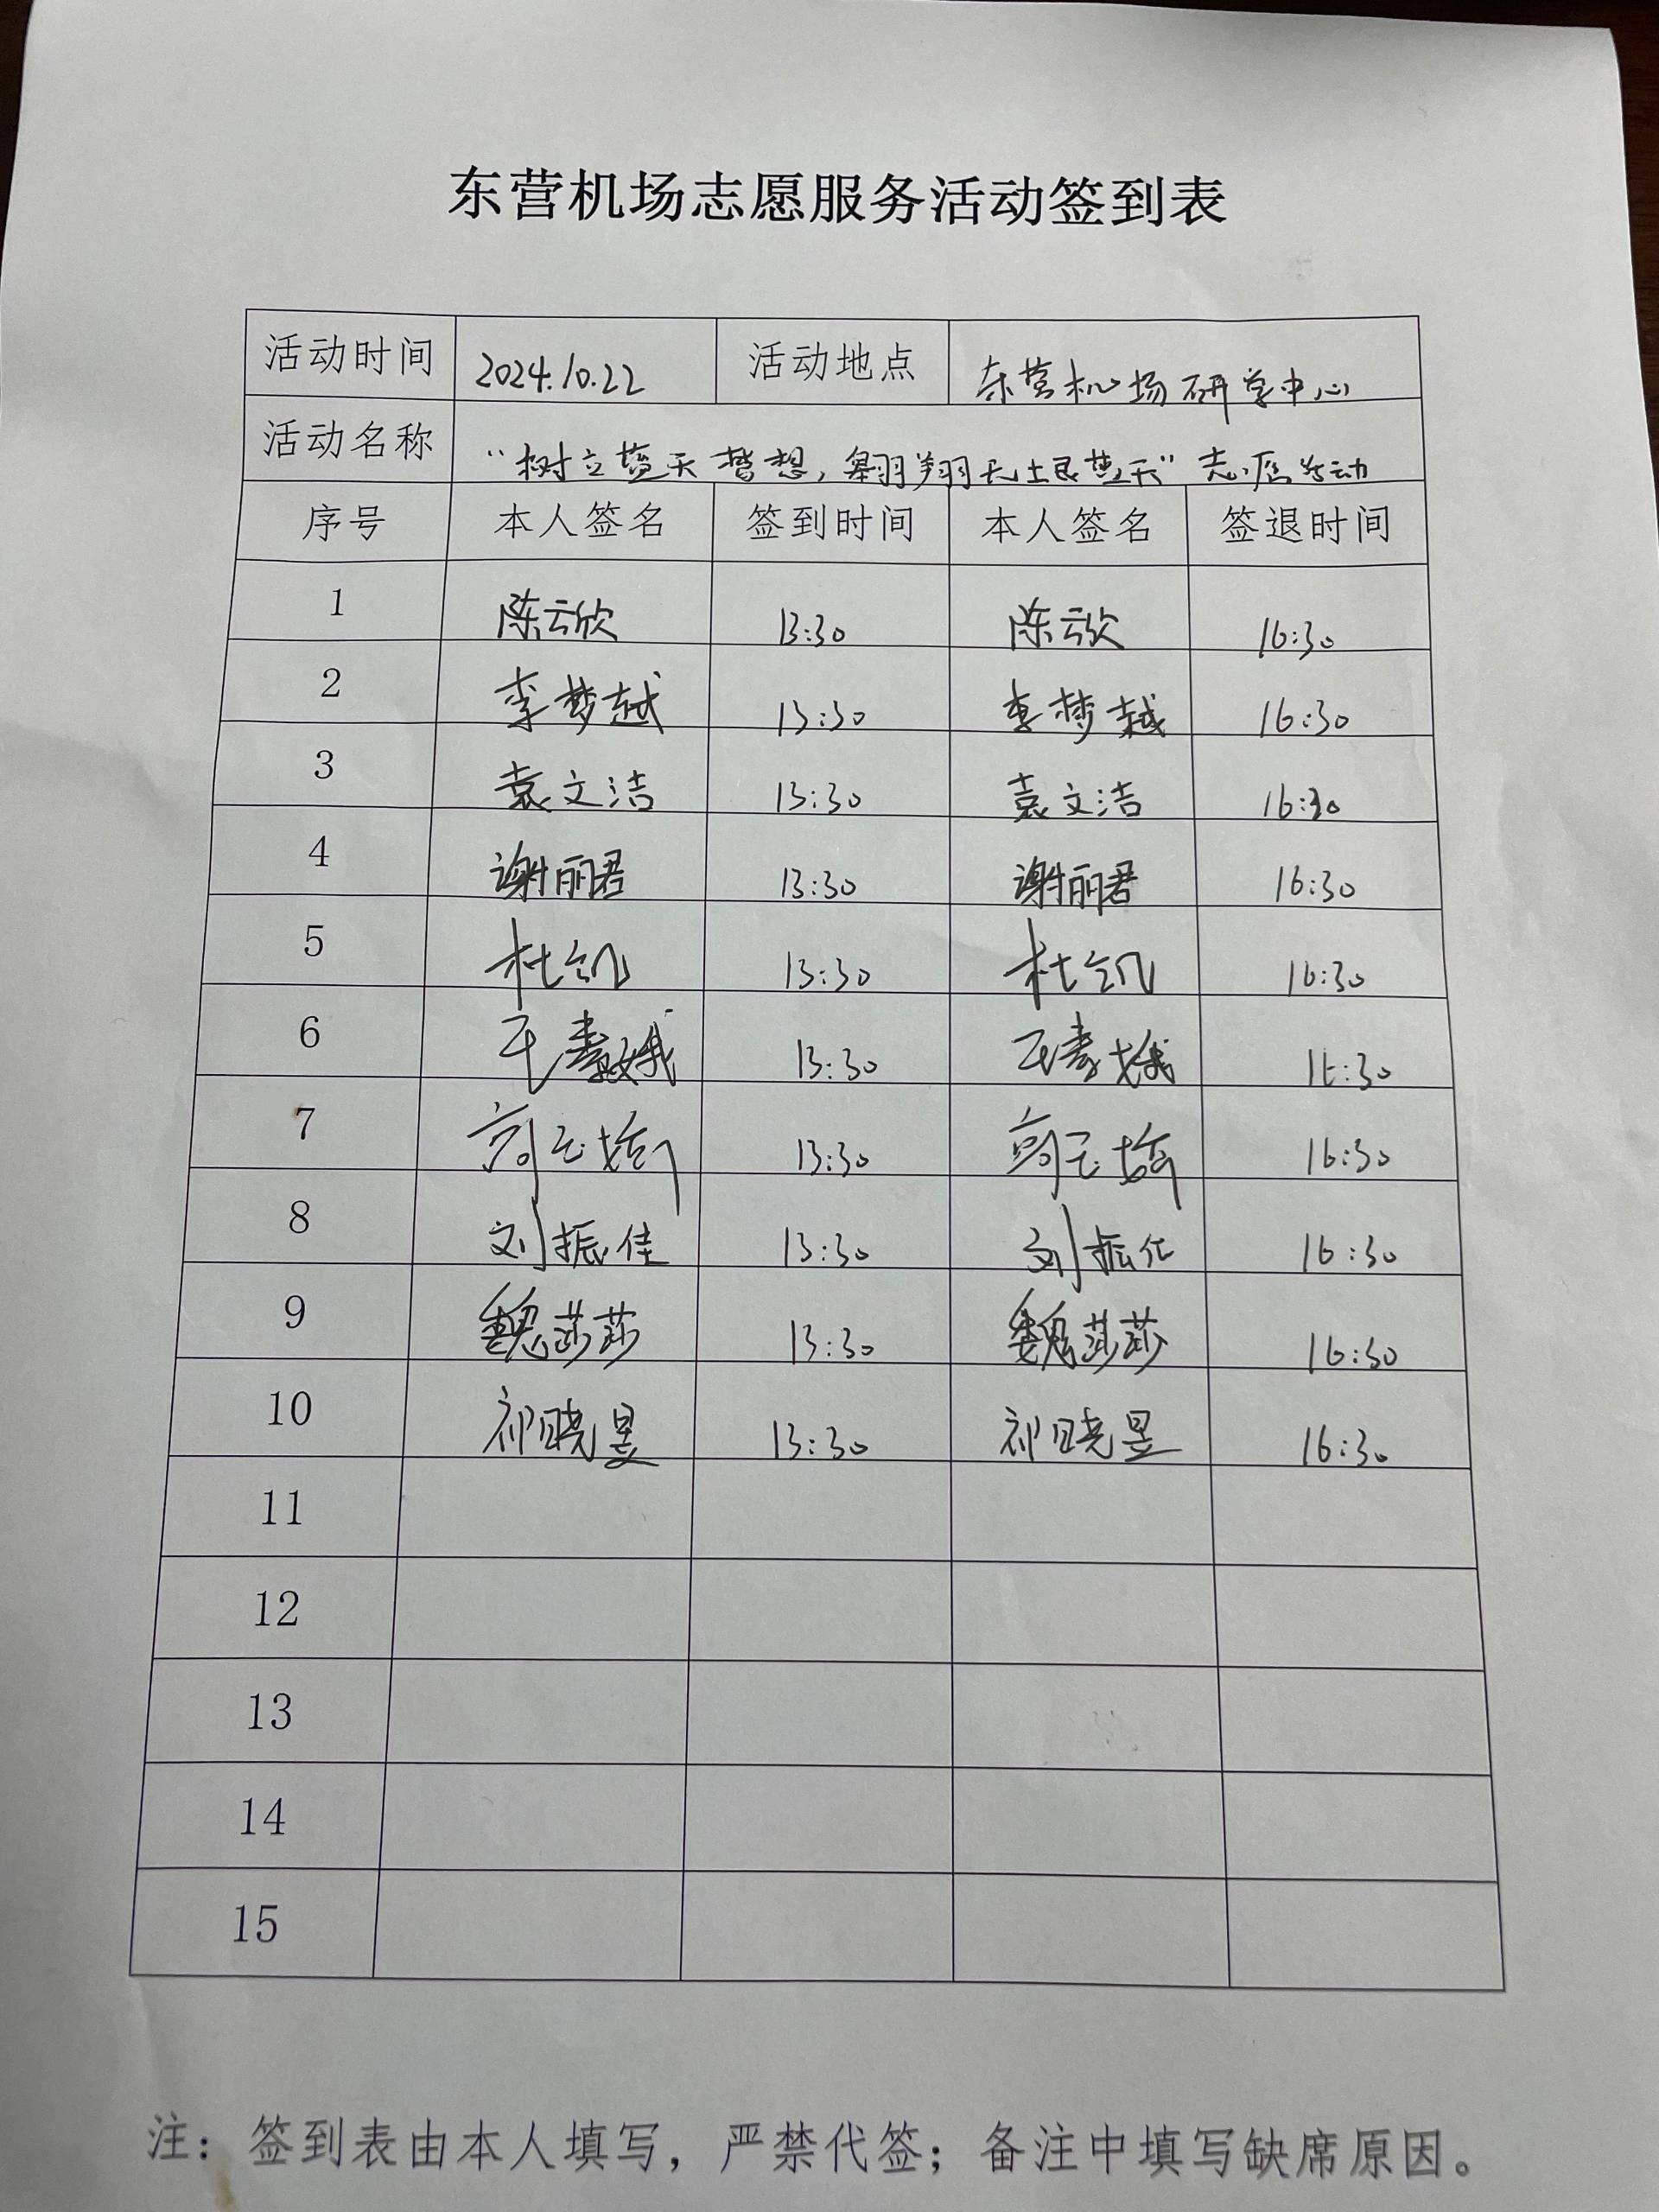 东营机场志愿服务活动签到表
活动时间 2024.10.22 活动地点 东营机场研学中心
活动名称 “树立蓝天梦想，翱翔无垠蓝天”志愿活动
序号 本人签名 签到时间 本人签名 签退时间
1 陈云欣 13:30 陈云欣 16:30
2 李梦越 13:30 李梦越 16:30
3 袁文洁 13:30 袁文洁 16:30
4 谢丽君 13:30 谢丽君 16:30
5 杜 13:30 杜 16:30
6 王素娥 13:30 王素娥 16:30
7 13:30 16:30
8 刘振佳 13:30 刘振佳 16:30
9 魏莎莎 13:30 魏莎莎 16:30
10 祁晓昱 13:30 祁晓昱 16:30
11
12
13
14
15
注：签到表由本人填写，严禁代签；备注中填写缺席原因。